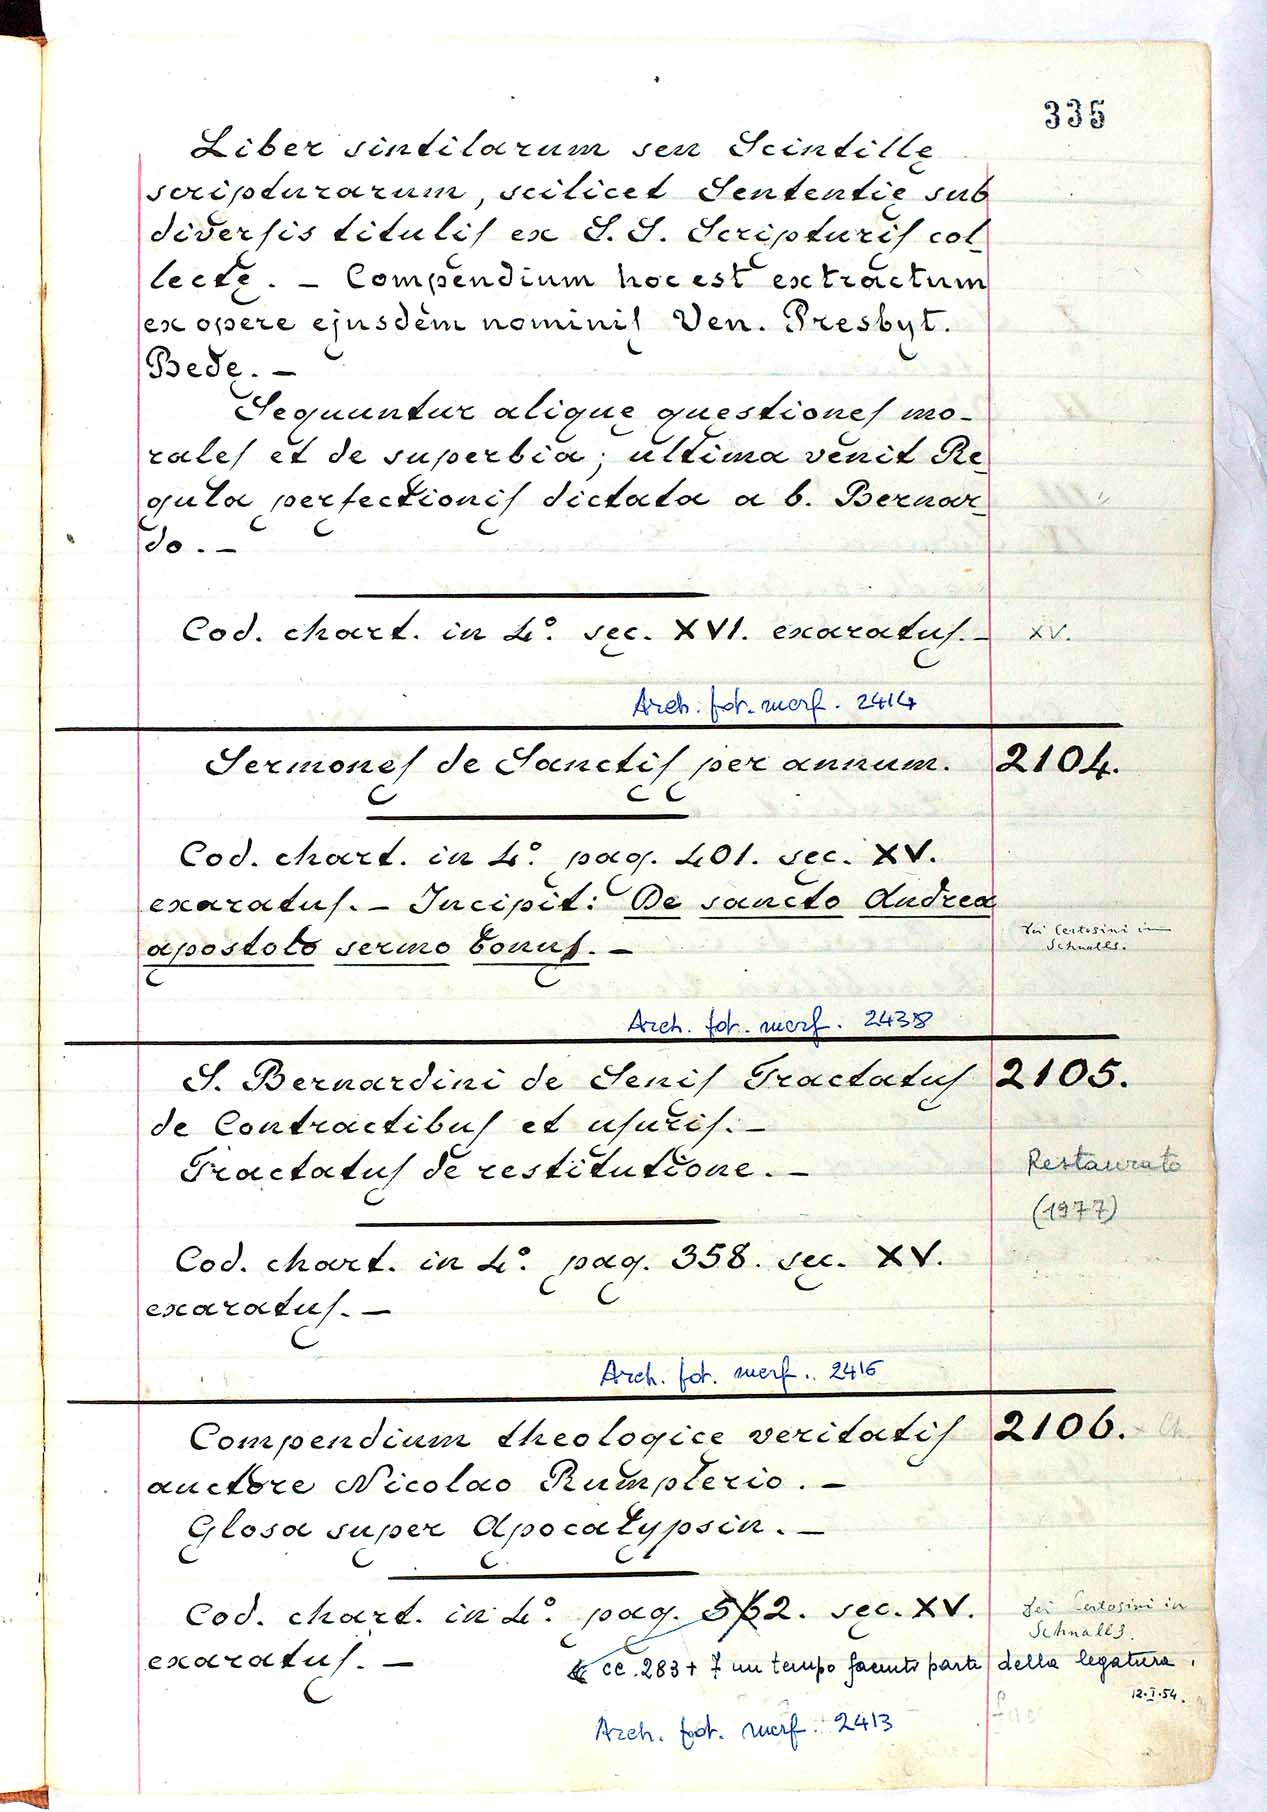 335
Liber sintilarum seu Scintillę
scripturarum, scilicet Sententię sub
diverſis tituliſ ex S. S. Scripturiſ col_
lectę. _ Compendium hoc est extractum
ex opere ejusdem nominiſ Ven. Presbyt.
Bedę. _
Sequuntur aliquę questioneſ mo_
raleſ et de superbia; ultima venit Re_
gula perfectioniſ dictata a b. Bernar_
do. _
Cod. chart. in 4º. sec. XVI. exaratuſ. _ XV.
Arch. fot. merf. 2414
Sermoneſ de Sanctiſ per annum. 2104.
Cod. chart. in 4º. pag. 401. sec. XV.
exaratuſ. _ Incipit: De sancto Andrea
apostolo sermo bonuſ. _
Dei Certosini in
Schnalls.
Arch. fot. merf. 2438
S. Bernardini de Seniſ Tractatuſ 2105.
de Contractibuſ et uſuriſ. _
Tractatuſ de restitutione. _ Restaurato
(1977)
Cod. chart. in 4º. pag. 358. sec. XV.
exaratuſ. _
Arch. fot. merf. 2416
Compendium theologicę veritatiſ 2106.
auctore Nicolao Rumplerio. _
Glosa super Apocalypsin. _
Cod. chart. in 4º. pag. 562. sec. XV. Dei Certosini in
Schnalls.
exaratuſ. _ cc. 283 + 7 un tempo facenti parte della legatura.
12.I.54.
Arch. fot. merf. 2413